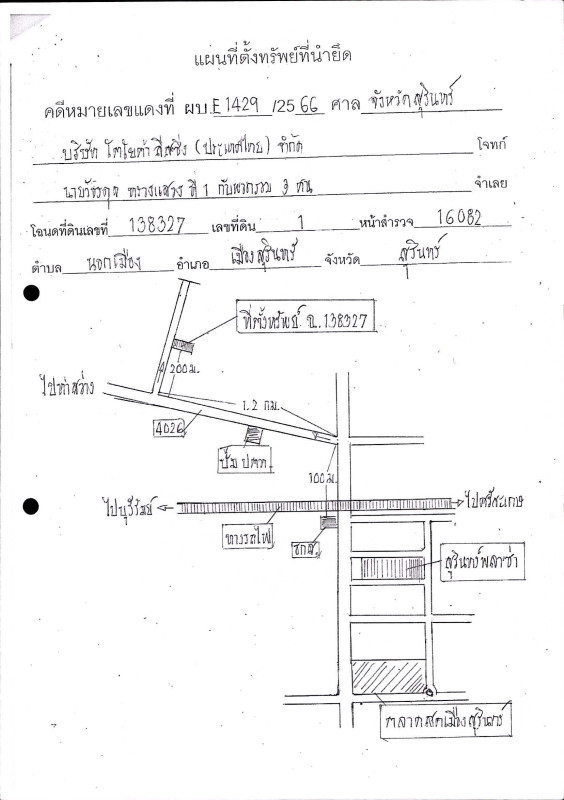 แผนที่ตั้งทรัพย์ที่นำยึด
คดีหมายเลขแดงที่ ผบ.E1429 /2566 ศาล จังหวัดสุรินทร์
บริษัท โตโยต้า ลีสซิ่ง (ประเทศไทย) จำกัด โจทก์
ที่ 1 กับพวกรวม 3 คน จำเลย
โฉนดที่ดินเลขที่ 138327 เลขที่ดิน 1 หน้าสำรวจ 16082
ตำบล นอกเมือง อำเภอ เมืองสุรินทร์ จังหวัด สุรินทร์
ที่ตั้งทรัพย์ ฉ.138327
200 ม.
ไปท่าสว่าง
1.2 กม.
4026
ปั๊ม ปตท.
100 ม.
ไปบุรีรัมย์
ไปศรีสะเกษ
ทางรถไฟ
ธกส.
สุรินทร์พลาซ่า
ตลาดสดเมืองสุรินทร์